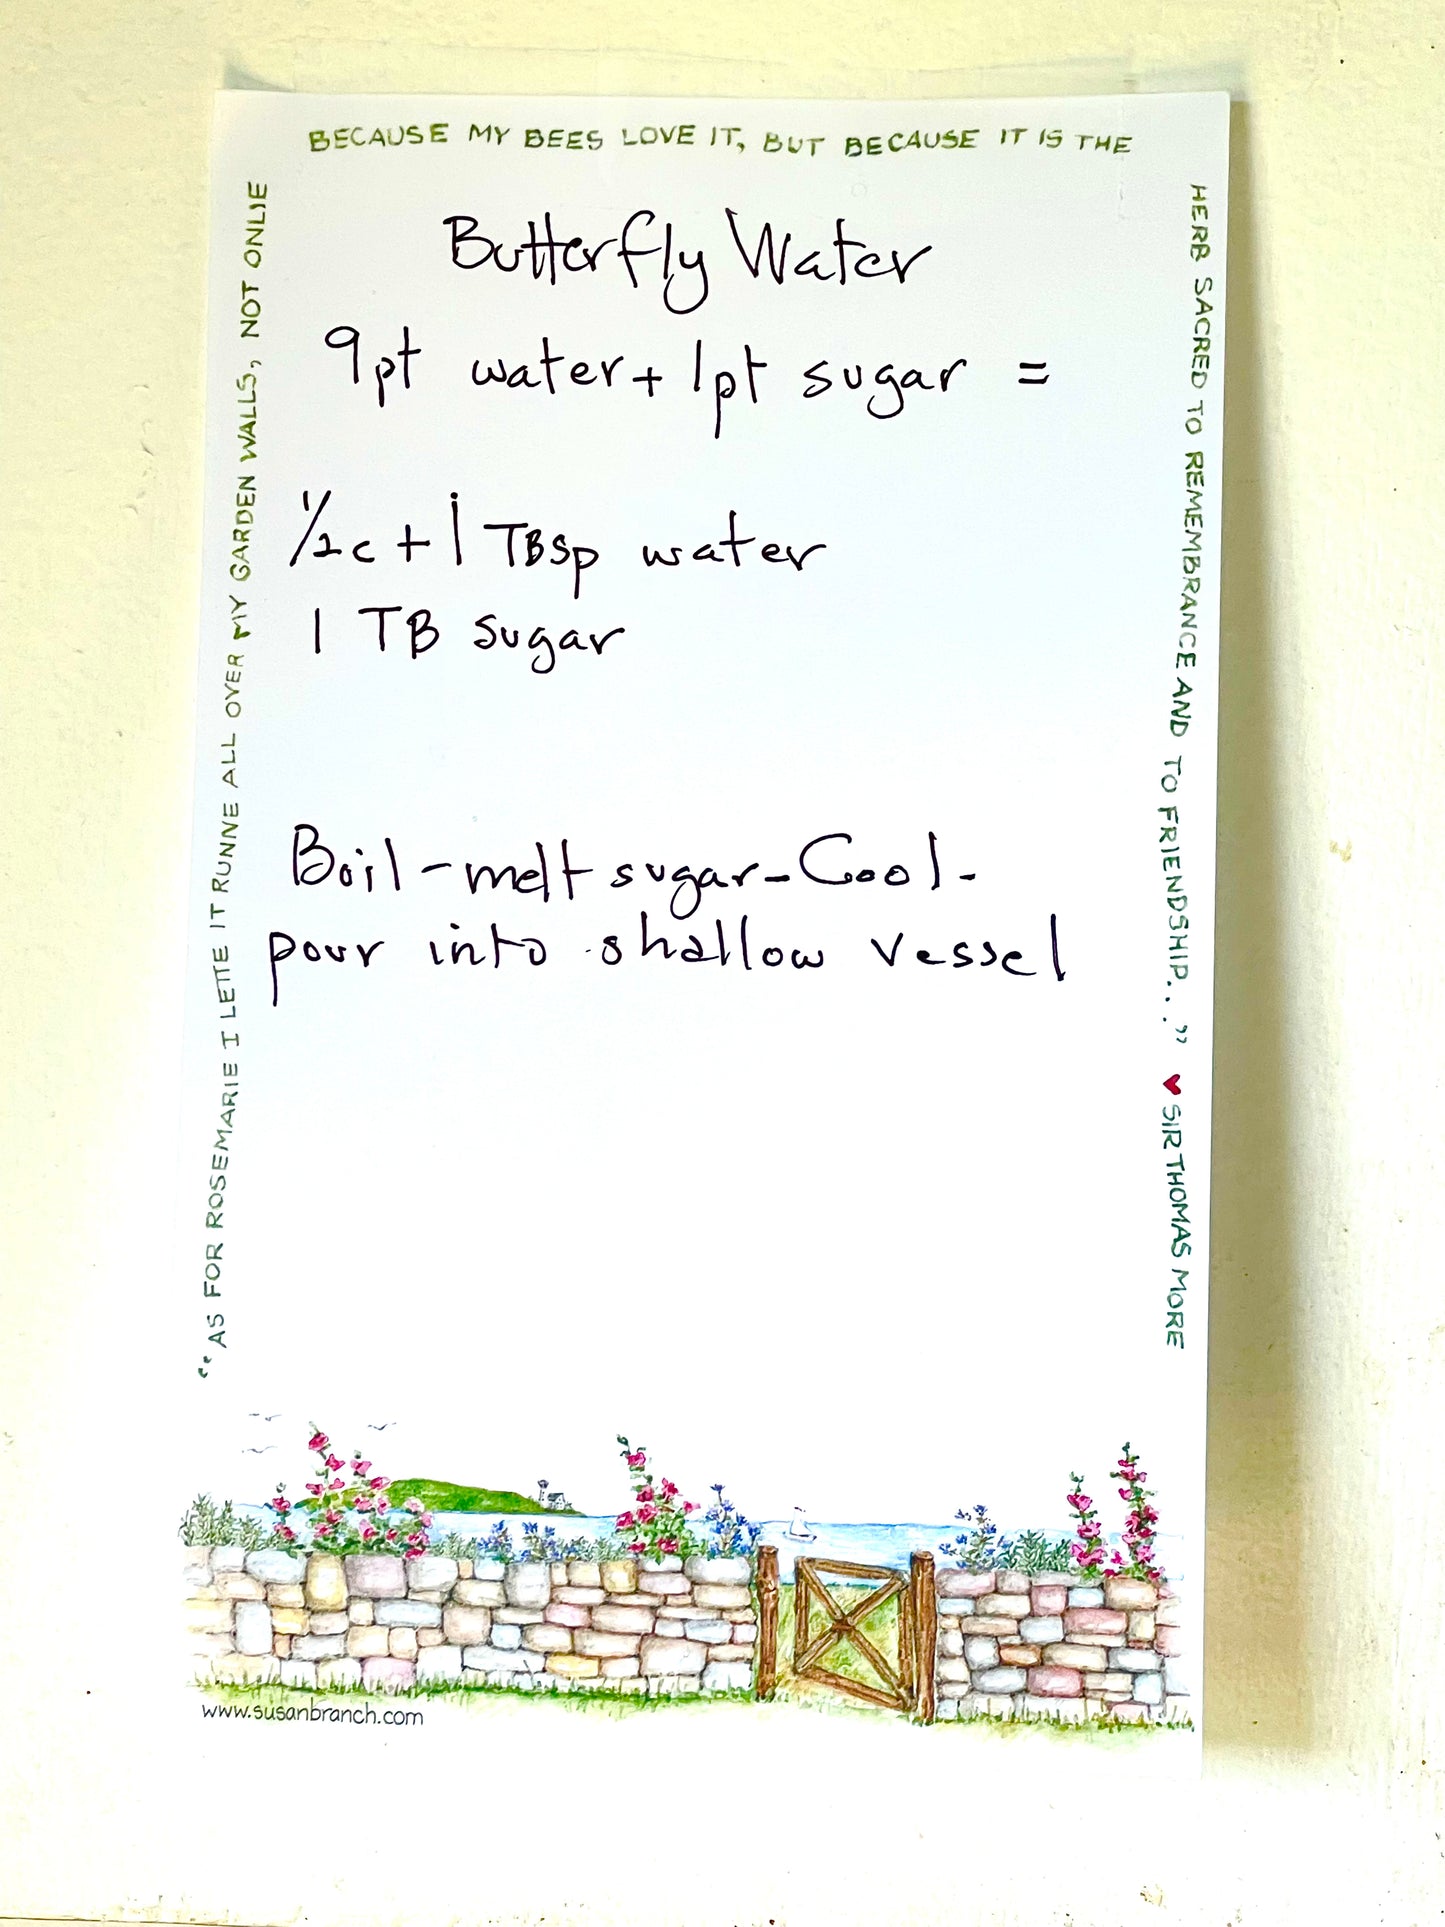 "AS FOR ROSEMARIE I LETTE IT RUNNE ALL OVER MY GARDEN WALLS, NOT ONLIE
BECAUSE MY BEES LOVE IT, BUT BECAUSE IT IS THE
HERB SACRED TO REMEMBRANCE AND TO FRIENDSHIP..." ♥ SIR THOMAS MORE
Butterfly Water
9pt water + 1pt sugar =
1/2c + 1 TBSp water
1 TB sugar
Boil - melt sugar - Cool -
pour into shallow vessel
www.susanbranch.com